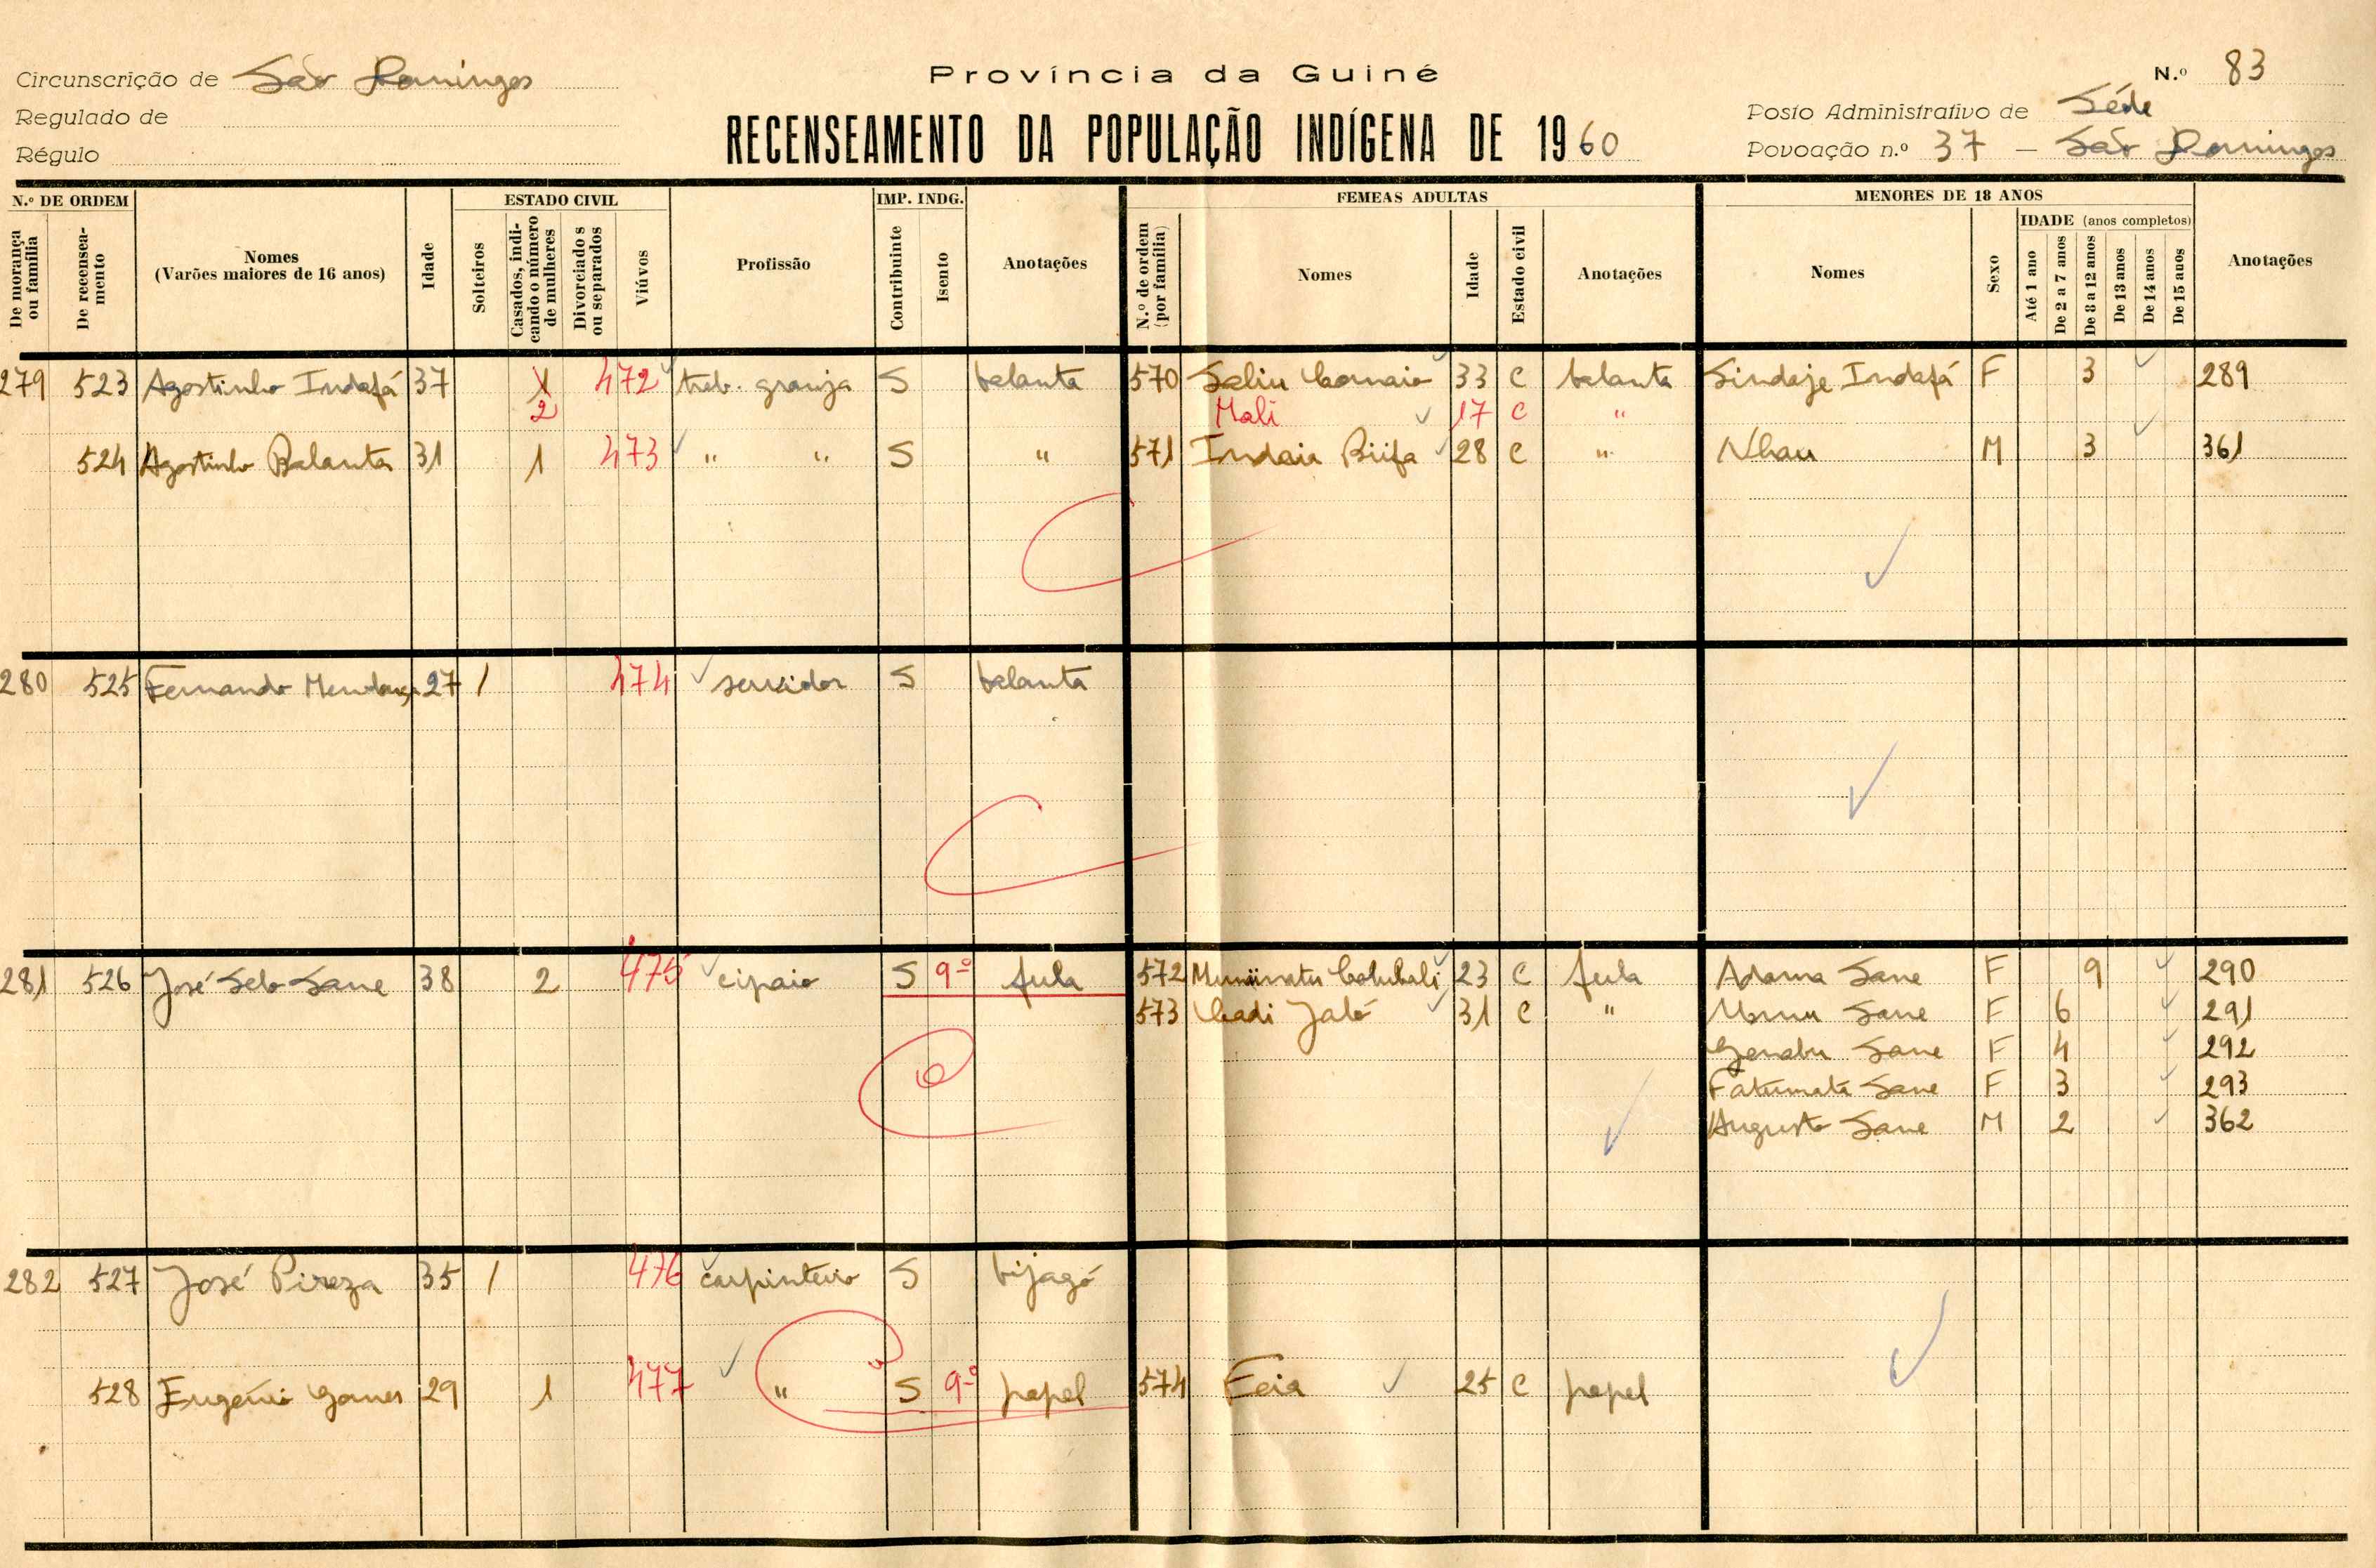 Província da Guiné
N.º 83
Circunscrição de São Domingos
Regulado de
Régulo
RECENSEAMENTO DA POPULAÇÃO INDÍGENA DE 1960
Posto Administrativo de Séde
Povoação n.º 37 – São Domingos
N.º DE ORDEM
De morança ou família
De recenseamento
Nomes
(Varões maiores de 16 anos)
Idade
ESTADO CIVIL
Solteiros
Casados, indicando o número de mulheres
Divorciados ou separados
Viúvos
Profissão
IMP. INDG.
Contribuinte
Isento
Anotações
FEMEAS ADULTAS
N.º de ordem (por família)
Nomes
Idade
Estado civil
Anotações
MENORES DE 18 ANOS
Nomes
Sexo
IDADE (anos completos)
Até 1 ano
De 2 a 7 anos
De 8 a 12 anos
De 13 anos
De 14 anos
De 15 anos
Anotações
279 523 Agostinho Indafá 37 1 472 trab. granja S balanta 570 Saliu 33 C balanta Sindaje Indafá F 3 289
2 Mali 17 C "
524 Agostinho Balanta 31 1 473 " " S " 571 Indaia 28 C " Nhau M 3 361
280 525 Fernando 27 1 474 servidor S balanta
281 526 José Selo Sane 38 2 475 cipaio S 9º fula 572 23 C fula Adama Sane F 9 290
573 Cadi Jaló 31 C " Sane F 6 291
Genabu Sane F 4 292
Fatumata Sane F 3 293
Augusto Sane M 2 362
282 527 José Pireza 35 1 476 carpinteiro S bijagó
528 Eugénio Gomes 29 1 477 " S 9º papel 574 25 C papel